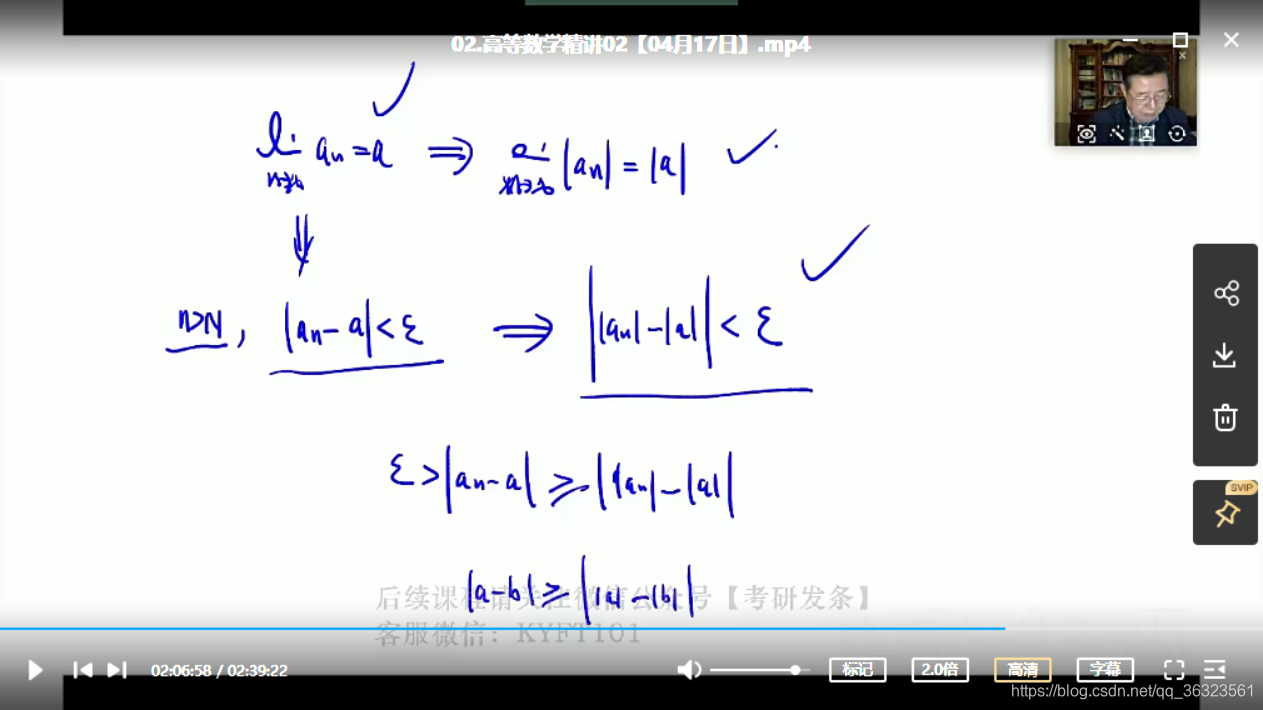 02.高等数学精讲02【04月17日】.mp4
lim aₙ = a ⇒ lim |aₙ| = |a|
n→∞ n→∞
⇓
n>N, |aₙ - a| < ε ⇒ ||aₙ| - |a|| < ε
ε > |aₙ - a| ≥ ||aₙ| - |a||
|a - b| ≥ ||a| - |b||
后续课程请关注微信公众号【考研发条】
客服微信：KYFT101
SVIP
02:06:58 / 02:39:22
标记 2.0倍 高清 字幕
https://blog.csdn.net/qq_36323561